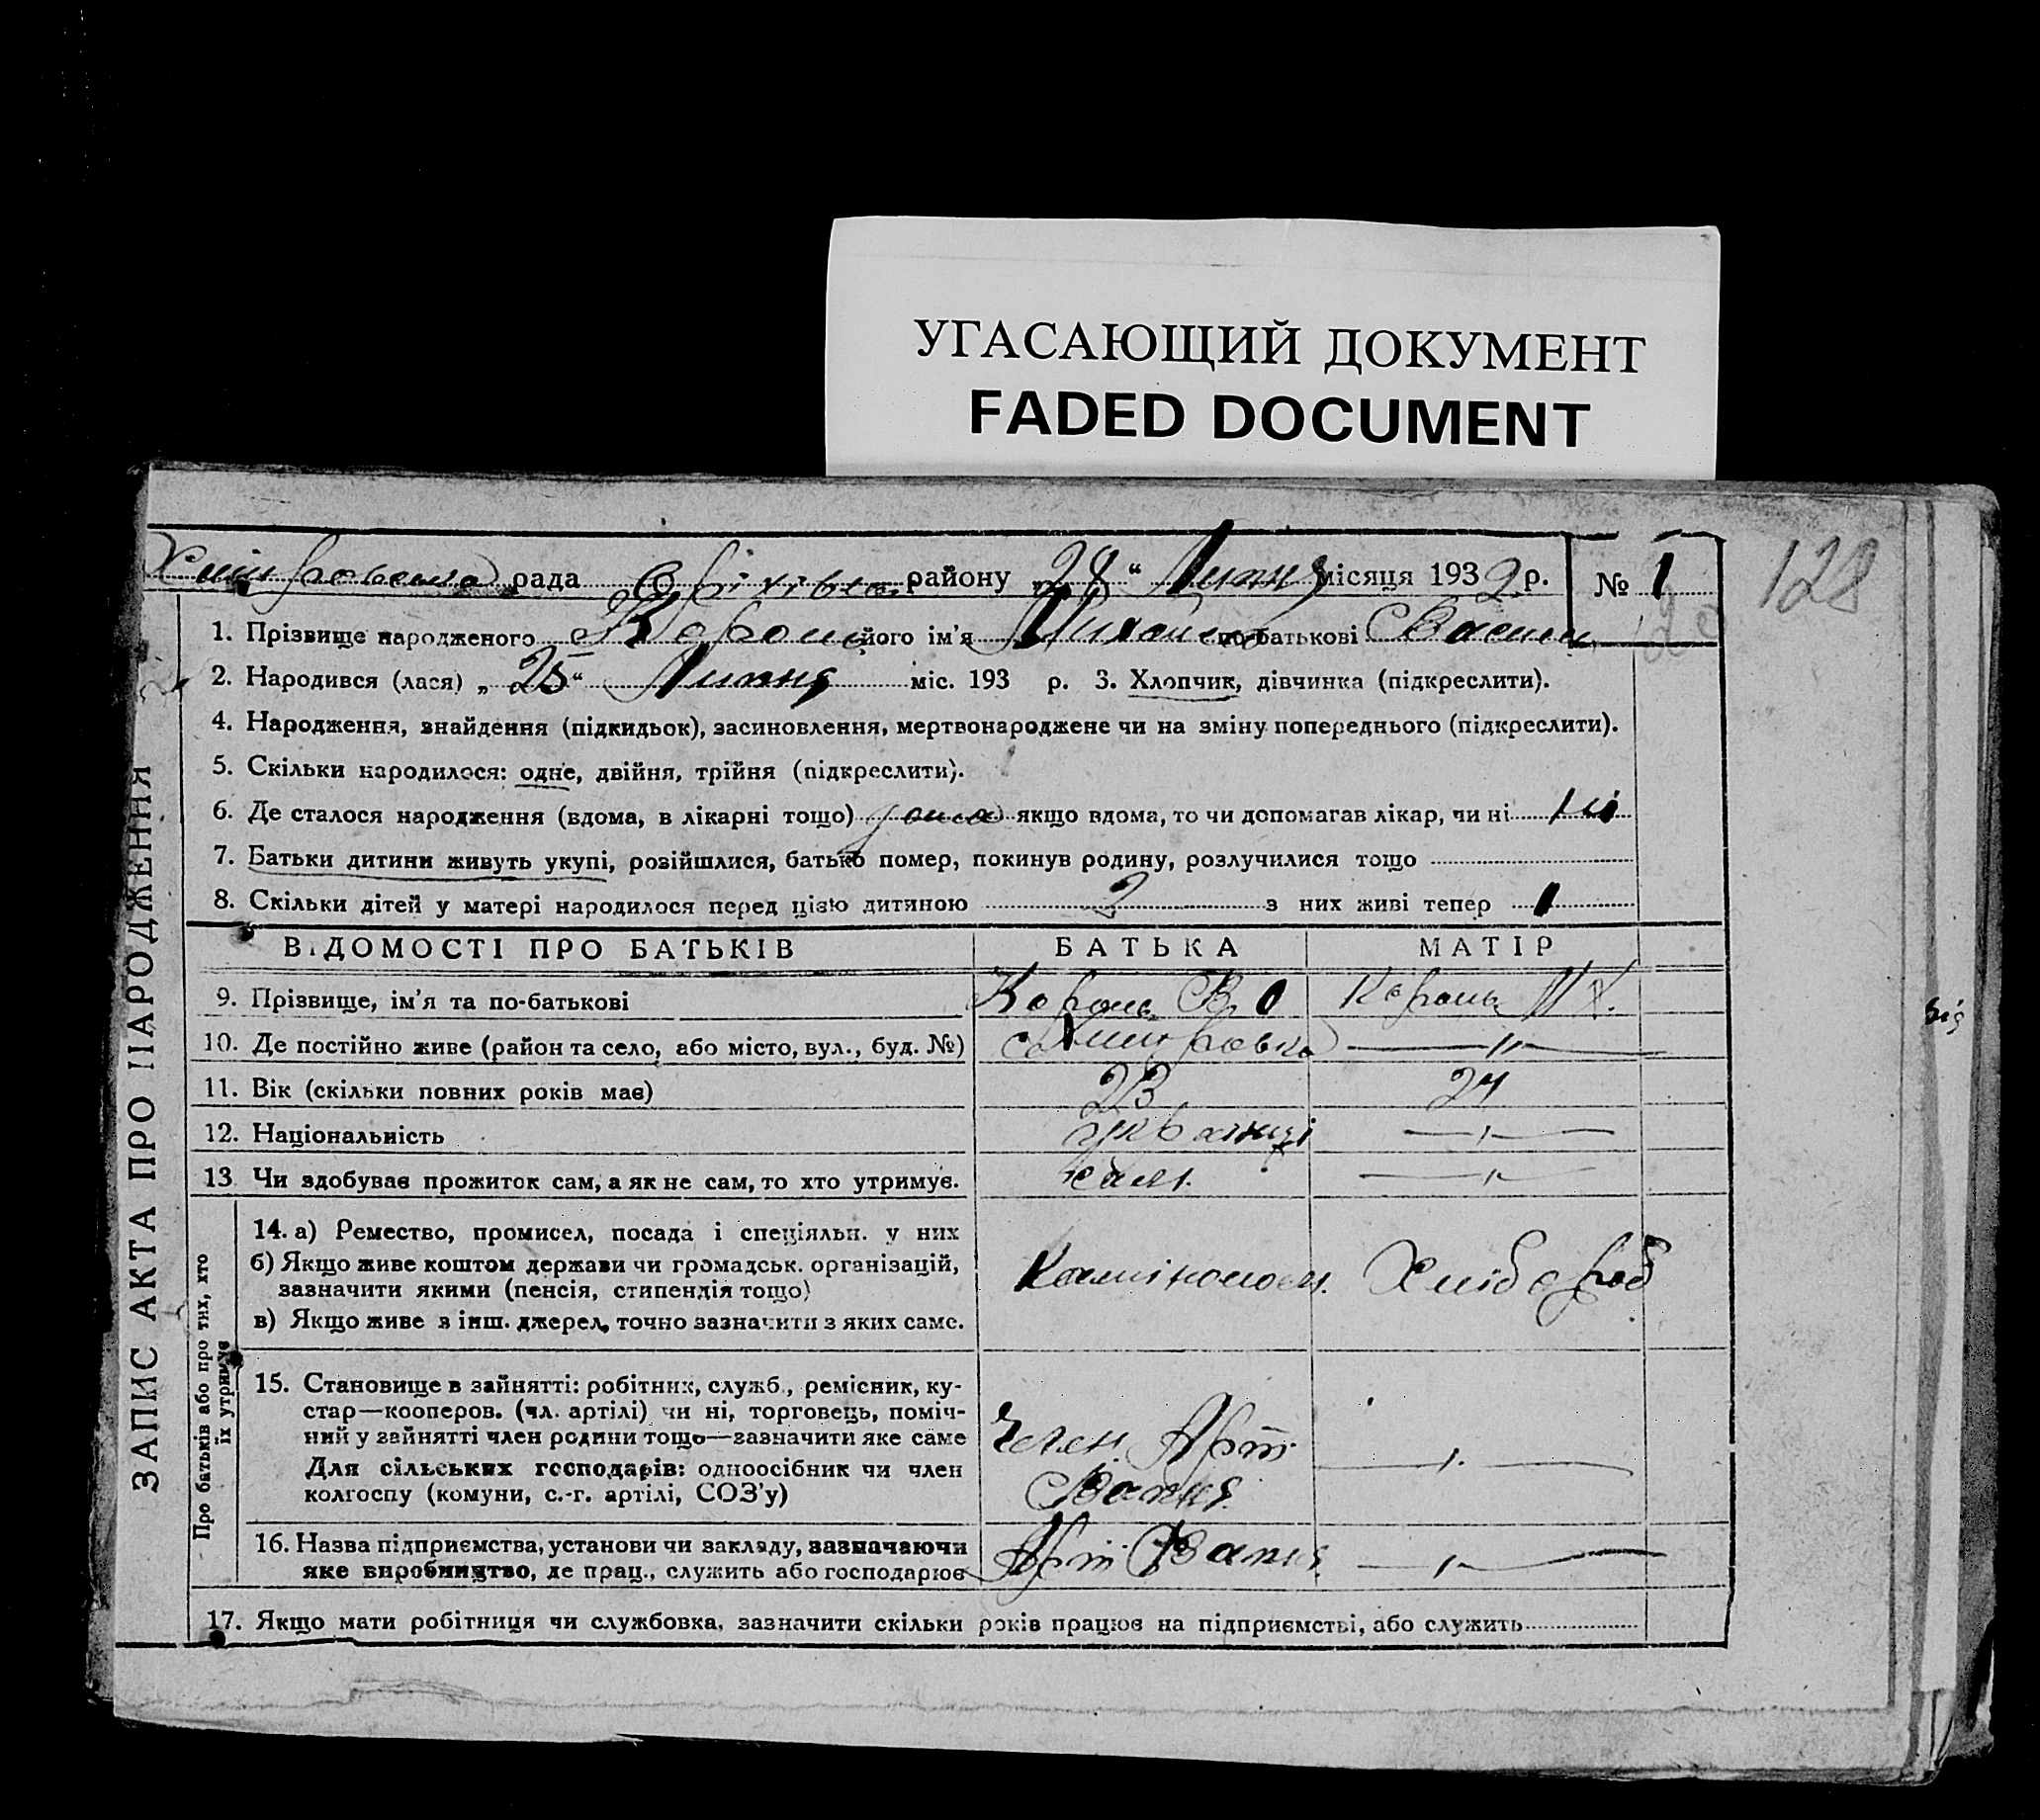 УГАСАЮЩИЙ ДОКУМЕНТ
FADED DOCUMENT
рада району „28“ Липня місяця 1932 р. № 1
128
1. Прізвище народженого Король його ім'я Михайло по-батькові
2. Народився (лася) „25“ Липня міс. 193 р. 3. Хлопчик, дівчинка (підкреслити).
4. Народження, знайдення (підкидьок), засиновлення, мертвонароджене чи на зміну попереднього (підкреслити).
5. Скільки народилося: одне, двійня, трійня (підкреслити).
6. Де сталося народження (вдома, в лікарні тощо) дома якщо вдома, то чи допомагав лікар, чи ні ні
7. Батьки дитини живуть укупі, розійшлися, батько помер, покинув родину, розлучилися тощо
8. Скільки дітей у матері народилося перед цією дитиною 2 з них живі тепер 1
ВІДОМОСТІ ПРО БАТЬКІВ БАТЬКА МАТІР
9. Прізвище, ім'я та по-батькові Король В. О Король М Х.
10. Де постійно живе (район та село, або місто, вул., буд. №) —〃—
11. Вік (скільки повних років має) 23 24
12. Національність українці —〃—
13. Чи здобуває прожиток сам, а як не сам, то хто утримує. сам. —〃—
14. а) Ремество, промисел, посада і спеціяльн. у них
б) Якщо живе коштом держави чи громадськ. організацій,
зазначити якими (пенсія, стипендія тощо)
Хлібороб
в) Якщо живе з інш. джерел, точно зазначити з яких саме.
15. Становище в зайнятті: робітник, служб., ремісник, ку-
стар—кооперов. (чл. артілі) чи ні, торговець, поміч-
ний у зайнятті член родини тощо—зазначити яке саме
Член Арт. —〃—
Для сільських господарів: одноосібник чи член
колгоспу (комуни, с.-г. артілі, СОЗ'у)
16. Назва підприємства, установи чи закладу, зазначаючи
яке виробництво, де прац., служить або господарює Арт. —〃—
17. Якщо мати робітниця чи службовка, зазначити скільки років працює на підприємстві, або служить
ЗАПИС АКТА ПРО НАРОДЖЕННЯ
Про батьків або про тих, хто
їх утримує